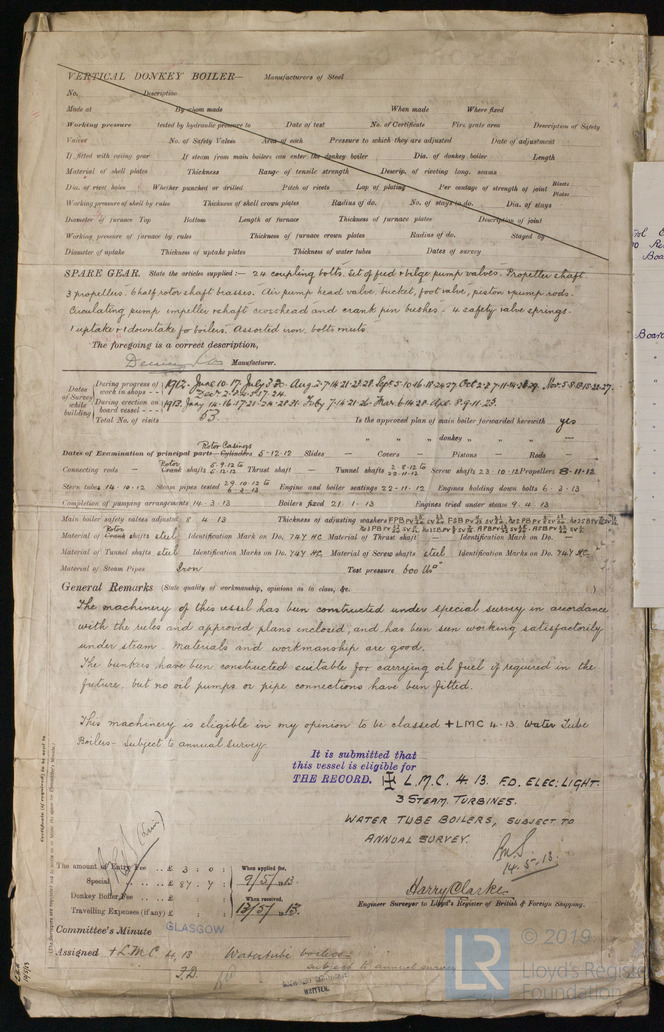 VERTICAL DONKEY BOILER— Manufacturers of Steel
No. Description
Made at By whom made When made Where fixed
Working pressure tested by hydraulic pressure to Date of test No. of Certificate Fire grate area Description of Safety
Valves No. of Safety Valves Area of each Pressure to which they are adjusted Date of adjustment
If fitted with easing gear If steam from main boilers can enter the donkey boiler Dia. of donkey boiler Length
Material of shell plates Thickness Range of tensile strength Descrip. of riveting long. seams
Dia. of rivet holes Whether punched or drilled Pitch of rivets Lap of plating Per centage of strength of joint Rivets Plates
Working pressure of shell by rules Thickness of shell crown plates Radius of do. No. of stays to do. Dia. of stays
Diameter of furnace Top Bottom Length of furnace Thickness of furnace plates Description of joint
Working pressure of furnace by rules Thickness of furnace crown plates Radius of do. Stayed by
Diameter of uptake Thickness of uptake plates Thickness of water tubes Dates of survey
SPARE GEAR. State the articles supplied:— 24 coupling bolts. Set of feed & bilge pump valves. Propeller shaft
3 propellers. 6 half rotor shaft brasses. Air pump head valve, bucket, foot valve, piston & pump rods.
Circulating pump impeller & shaft crosshead and crank pin bushes. 4 safety valve springs.
1 uptake & 1 downtake for boilers. Assorted iron, bolts & nuts.
The foregoing is a correct description,
Manufacturer.
Dates of Survey while building
During progress of work in shops - - 1912. June 10. 17. July 3 30. Aug. 2. 7. 14. 21. 23. 28. Sept. 5. 10. 16. 18. 24. 27. Oct. 2. 3. 7. 11. 14. 23. 29. Nov. 5. 8. 13. 15. 22. 27.
During erection on board vessel - - - 1913. Jany 14. 16. 17. 21. 24. 28. 31. Feby 7. 14. 21. 26. Mar. 6. 14. 28. Apl. 8. 9. 11. 23.
Total No. of visits 53. Is the approved plan of main boiler forwarded herewith yes
" " " donkey " " —
Rotor Casings
Dates of Examination of principal parts— Cylinders 5-12-12 Slides — Covers — Pistons — Rods —
Connecting rods — Rotor Crank shafts 5.9.12 to 5.12.12 Thrust shaft — Tunnel shafts 2.8.12 to 22.11.12 Screw shafts 23.10.12 Propellers 8.11.12
Stern tubes 14.10.12 Steam pipes tested 29.10.12 to 6.3.13 Engine and boiler seatings 22.11.12 Engines holding down bolts 6.3.13
Completion of pumping arrangements 14.3.13 Boilers fixed 21.1.13 Engines tried under steam 9.4.13
Main boiler safety valves adjusted 8.4.13 Thickness of adjusting washers
Material of Rotor Crank shafts steel Identification Mark on Do. 747 HC. Material of Thrust shaft — Identification Mark on Do. —
Material of Tunnel shafts steel Identification Marks on Do. 747 HC. Material of Screw shafts steel Identification Marks on Do. 747 HC.
Material of Steam Pipes Iron Test pressure 600 lbs
General Remarks (State quality of workmanship, opinions as to class, &c. )
The machinery of this vessel has been constructed under special survey in accordance
with the rules and approved plans enclosed, and has been seen working satisfactorily
under steam. Materials and workmanship are good.
The bunkers have been constructed suitable for carrying oil fuel if required in the
future, but no oil pumps or pipe connections have been fitted.
This machinery is eligible in my opinion to be classed + LMC 4.13. Water Tube
Boilers- Subject to annual survey-
It is submitted that
this vessel is eligible for
THE RECORD. + L.M.C. 4.13. F.D. ELEC: LIGHT.
3 STEAM TURBINES.
WATER TUBE BOILERS, SUBJECT TO
ANNUAL SURVEY.
14.5.13.
The amount of Entry Fee . . £ 3 : 0 : When applied for,
Special . . . £ 87 : 7 : 9/5/13
Donkey Boiler Fee . . . £ : : When received,
Travelling Expenses (if any) £ : : 13/5/13.
Harry Clarke
Engineer Surveyor to Lloyd's Register of British & Foreign Shipping.
Committee's Minute GLASGOW
Assigned + L.M.C 4.13 Watertube boilers
F.D. subject to annual survey
WRITTEN.
© 2019
LR Lloyd's Register
Foundation